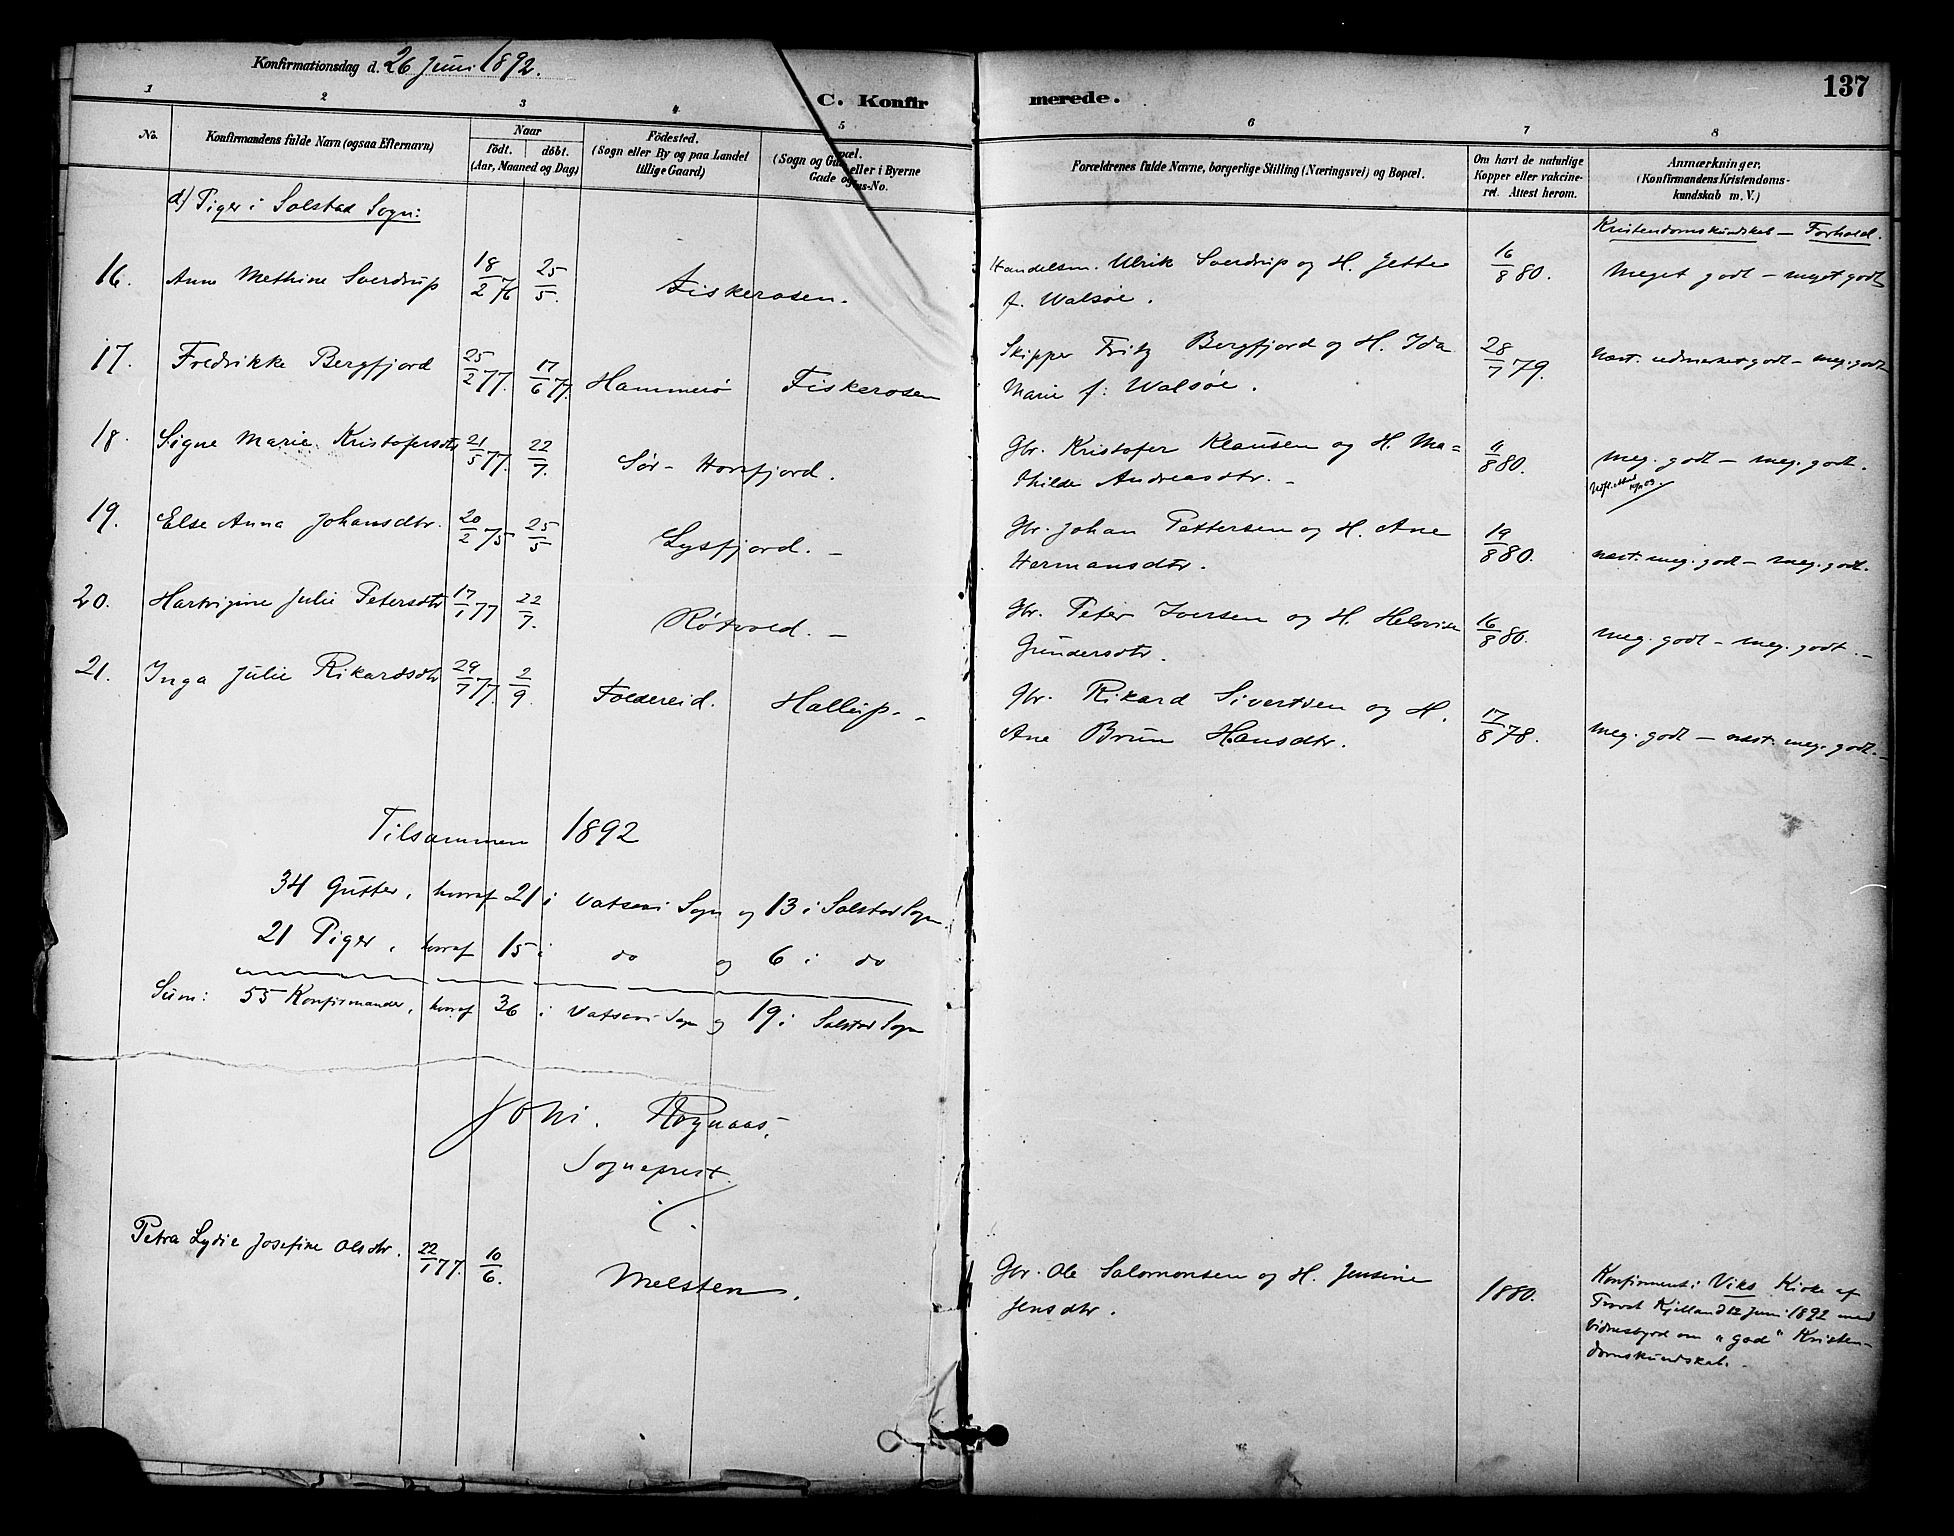 137
Konfirmationsdag d. 26 Juni 1892.
C. Konfirmerede.
1 2 3 4 5 6 7 8
No.
Konfirmandens fulde Navn (ogsaa Efternavn)
Naar
födt. döbt.
(Aar, Maaned og Dag)
Födested.
(Sogn eller By og paa Landet
tillige Gaard)
(Sogn og eller i Byerne
Gade og us-No.
Forældrenes fulde Navne, borgerlige Stilling (Næringsvei) og Bopæl.
Om havt de naturlige
Kopper eller vakcine-
ret. Attest herom.
Anmærkninger.
(Konfirmandens Kristendoms-
kundskab m. V.)
d) Piger i Solstad Sogn:
Kristendomskundskab – Forhold.
16. Anne Methine Sverdrup 18/2 76 25/5. Fiskerosen. Handelsm. Ulrik Sverdrup og H. Jette 16/8 80. Meget godt – meget godt
f. Walsøe.
17. Fredrikke Bergfjord 25/2 77. 17/6 77. Hammerø Fiskerosen Skipper Fritz Bergfjord og H. Ida 28/7 79. næst. udmærket godt – meg. godt
Marie f: Walsøe.
18. Signe Marie Kristofersdtr 21/5 77. 22/7. Sør-Horsfjord. Gbr. Kristofer Klausen og H. Ma- 11/8 80. meg. godt – meg. godt.
thilde Andreasdtr. –
19. Else Anna Johansdtr. 20/2 75 25/5 Lysfjord. – Gbr. Johan Pettersen og H. Ane 19/8 80. næst. meg. godt – meg. godt.
Hermansdtr.
20. Hartvigine Julie Petersdtr 17/1 77 22/7. Røtvold. – Gbr. Peter Iversen og H. Helsvise 16/8 80. meg. godt – meg. godt. –
Gundersdtr.
21. Inga Julie Rikardsdtr 29/7 77. 2/9 Foldereid. Holleip. – Gbr. Rikard Sivertsen og H. 17/8 78. meg. godt – næst. meg. godt. –
Ane Brun Hansdtr.
Tilsammen 1892
34 Gutter, hvoraf 21 i Vatsaas Sogn og 13 i Solstad Sogn
21 Piger, hvoraf 15 i do og 6 i do
Sum: 55 Konfirmander, hvoraf 36 i Vatsaas Sogn og 19 i Solstad Sogn
Johs. Rognaas,
Sogneprest.
Petra Lydie Josefine Olsdtr. 22/1 77. 10/6. Melsten. Gbr. Ole Salomonsen og H. Jensine 1880. Konfirmert i Viks Kirke af
Jensdtr. Provst Kjelland 12 Juni 1892 med
Vidnesbyrd om "god" Kristen-
domskundskab.